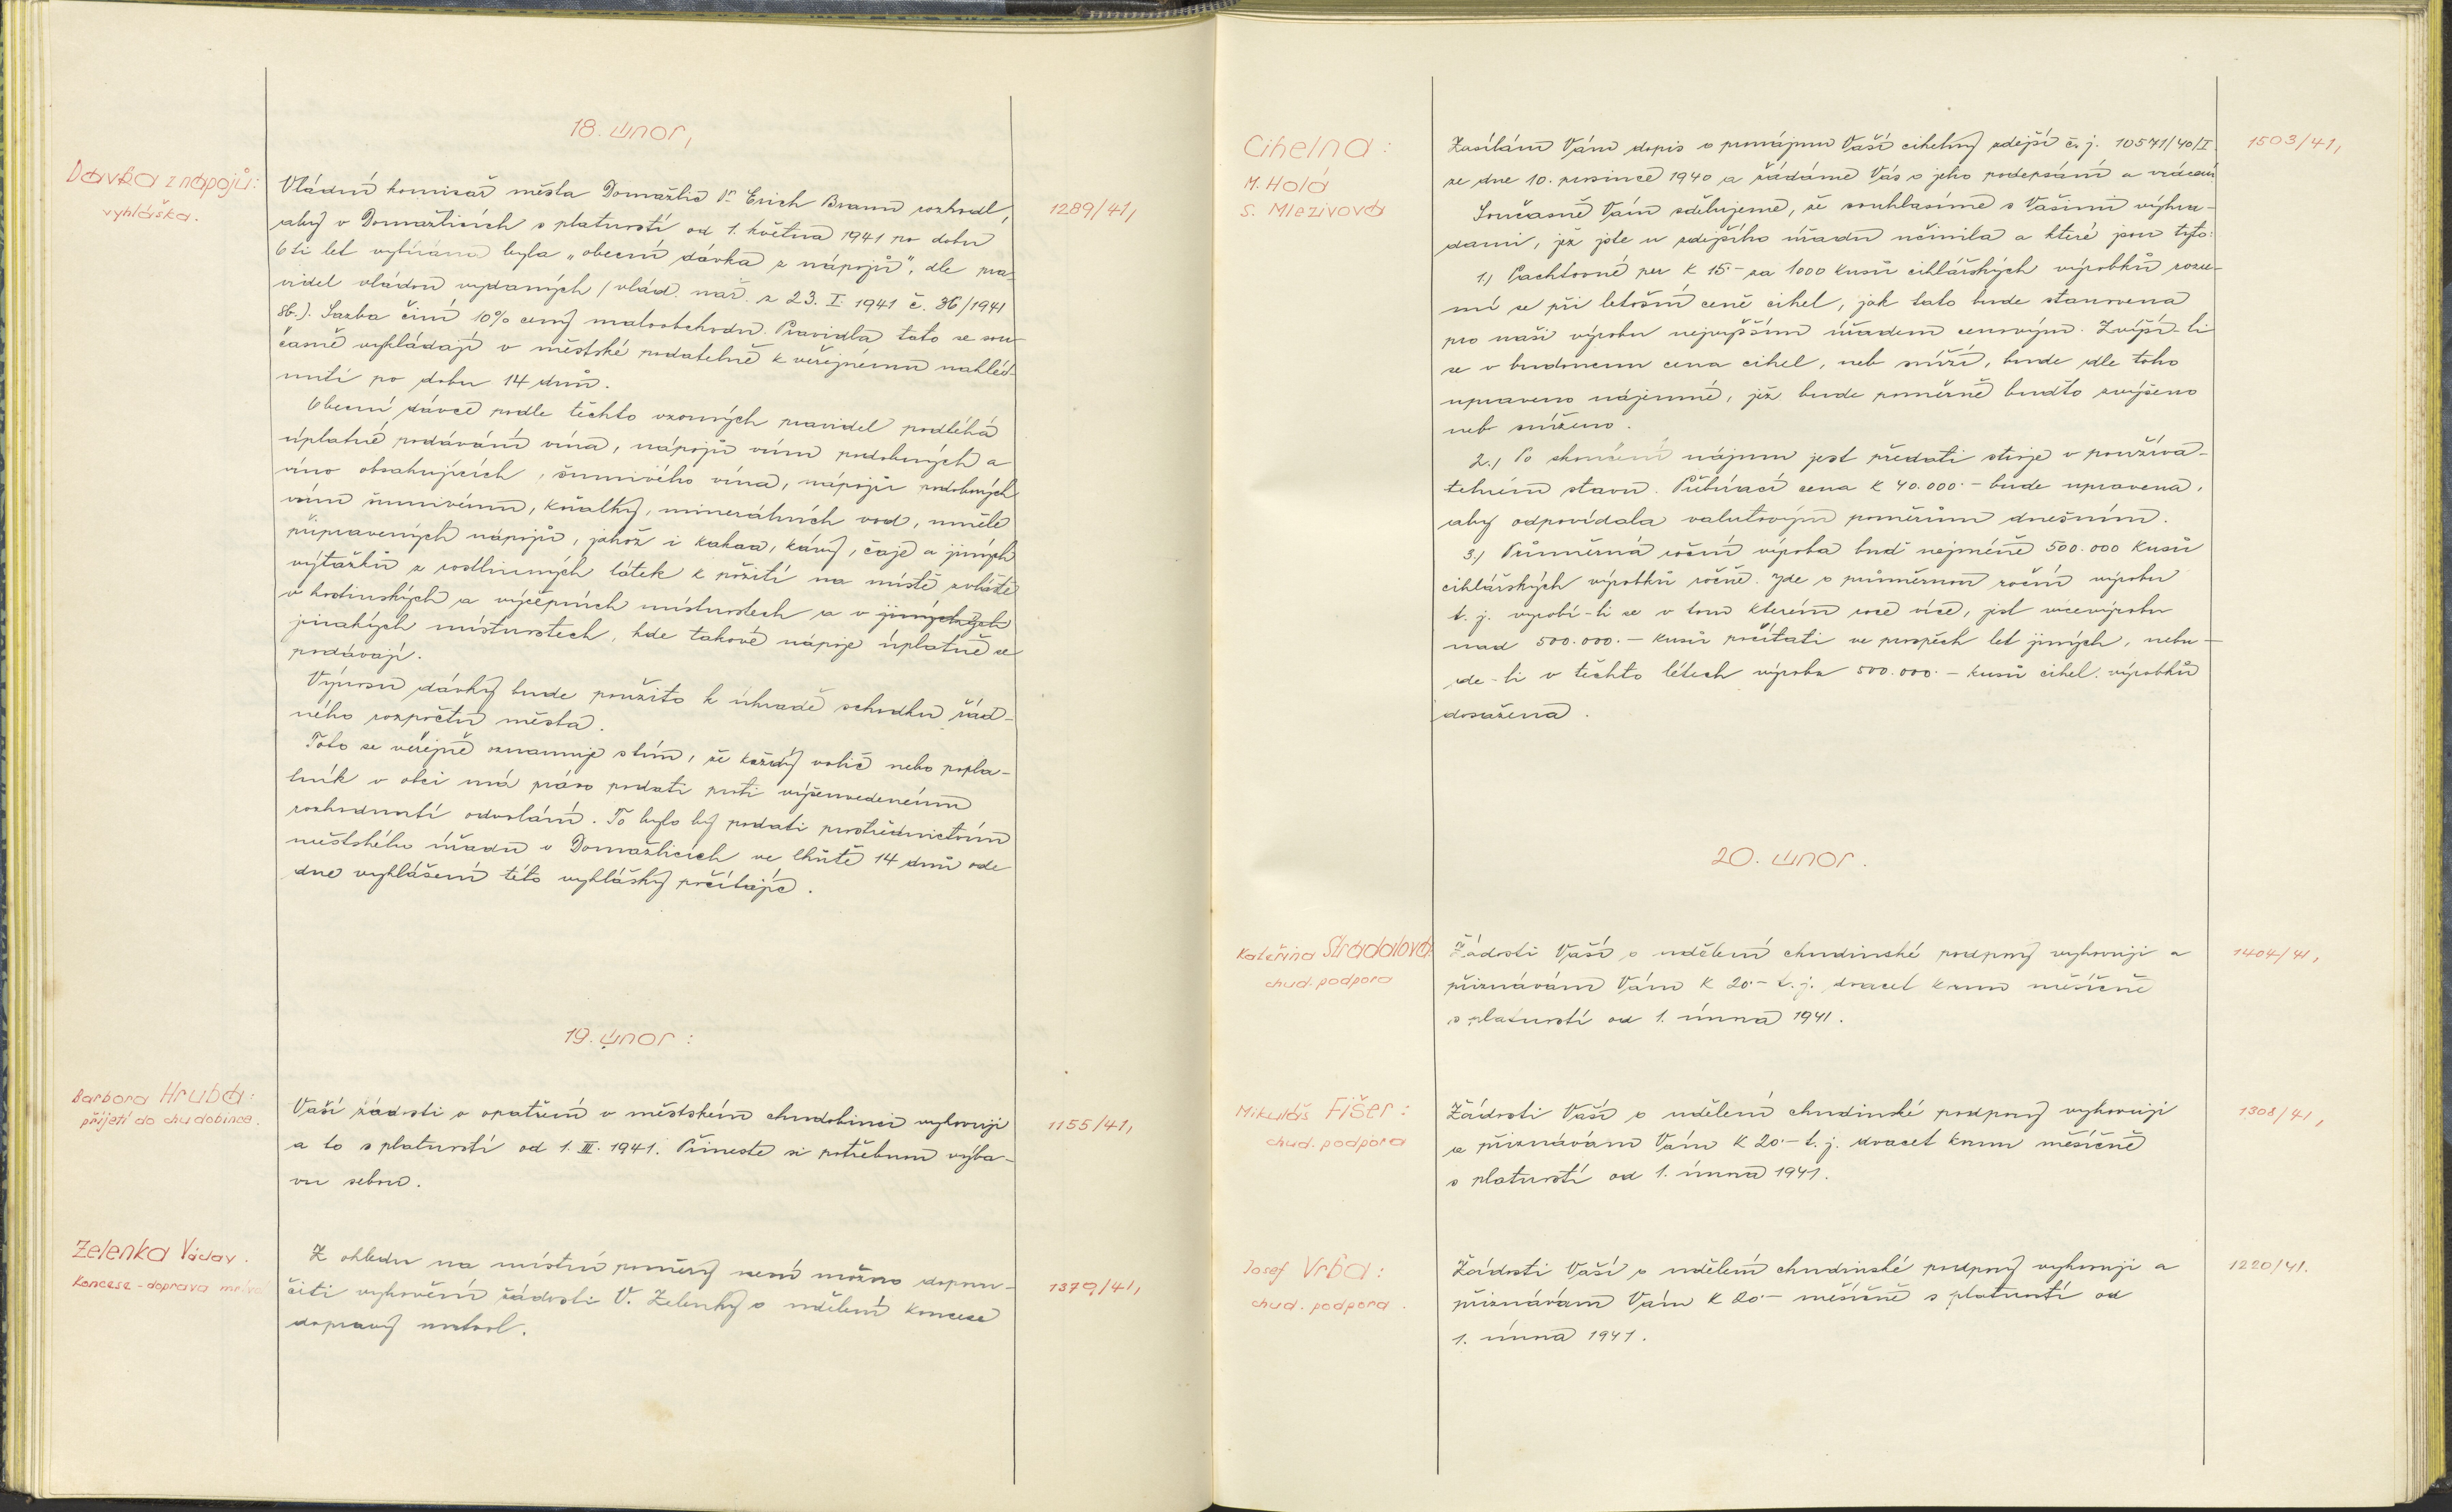 18. únor,
Dávka z nápojů:
vyhláška.
Vládní komisař města Domažlic Dr. Erich Braun rozhodl,
aby v Domažlicích s platností od 1. května 1941 po dobu
6ti let vybírána byla „obecní dávka z nápojů", dle pra-
videl vládou vydaných / vlád. nař. z 23. I. 1941 č. 36/1941
Sb.). Sazba činí 10% ceny maloobchodu. Pravidla tato se sou-
časně vykládají v městské podatelně k veřejnému nahléd-
nutí po dobu 14 dnů.
Obecní dávce podle těchto vzorných pravidel podléhá
úplatné podávání vína, nápojů vínu podobných a
víno obsahujících, šumivého vína, nápojů podobných
vínu šumivému, kořalky, minerálních vod, uměle
připravených nápojů, jakož i kakaa, kávy, čaje a jiných
výtažků z rostlinných látek k požití na místě zvláště
v hostinských a výčepních místnostech a v jiných
jinakých místnostech, kde takové nápoje úplatně se
podávají.
Výnosu dávky bude použito k úhradě schodku řád-
ného rozpočtu města.
Toto se veřejně oznamuje s tím, že každý volič nebo popla-
tník v obci má právo podati proti výšeuvedenému
rozhodnutí odvolání. To bylo by podati prostřednictvím
městského úřadu v Domažlicích ve lhůtě 14 dnů ode
dne vyhlášení této vyhlášky počítajíc.
1289/41,
19. únor:
Barbora Hrubá:
přijetí do chudobince.
Vaší žádosti o opatření v městském chudobinci vyhovuji
a to s platností od 1. III. 1941. Přineste si potřebnou výba-
vu sebou.
1155/41,
Zelenka Václav.
Koncese - doprava
Z ohledu na místní poměry není možno doporu-
čiti vyhovění žádosti V. Zelenky o udělení koncese
dopravy mrtvol.
1379/41,
Cihelna:
M. Holá
S. Mlezivová
Zasílám Vám dopis o pronájmu Vaší cihelny zdejší č. j. 10571/40/I
ze dne 10. prosince 1940 a žádáme Vás o jeho podepsání a vrácení
Současně Vám sdělujeme, že souhlasíme s Vašimi výhra-
dami, jež jste u zdejšího úřadu učinila a které jsou tyto:
1.) Pachtovné per K 15.- za 1000 kusů cihlářských výrobků rozu-
mí se při letošní ceně cihel, jak tato bude stanovena
pro naši výrobu nejvyšším úřadem cenovým. Zvýší-li
se v budoucnu cena cihel, neb sníží, bude dle toho
upraveno nájemné, jež bude poměrně buďto zvýšeno
neb sníženo.
2.) Po skončení nájmu jest předati stroje v používa-
telném stavu. Přibírací cena K 40.000.- bude upravena,
aby odpovídala valutovým poměrům dnešním.
3.) Průměrná roční výroba buď nejméně 500.000 kusů
cihlářských výrobků ročně. Jde o průměrnou roční výrobu
t. j. vyrobí-li se v tom kterém roce více, jest vícevýrobu
nad 500.000.- kusů počítati ve prospěch let jiných, nebu-
de-li v těchto létech výroba 500.000.- kusů cihel. výrobků
dosažena.
1503/41,
20. únor.
Kateřina Stradalová:
chud. podpora
Žádosti Vaší o udělení chudinské podpory vyhovuji a
přiznávám Vám K 20.- t. j. dvacet korun měsíčně
s platností od 1. února 1941.
1404/41,
Mikuláš Fišer:
chud. podpora
Žádosti Vaší o udělení chudinské podpory vyhovuji
a přiznávám Vám K 20.- t. j. dvacet korun měsíčně
s platností od 1. února 1941.
1308/41,
Josef Vrba:
chud. podpora.
Žádosti Vaší o udělení chudinské podpory vyhovuji a
přiznávám Vám K 20.- měsíčně s platností od
1. února 1941.
1220/41.